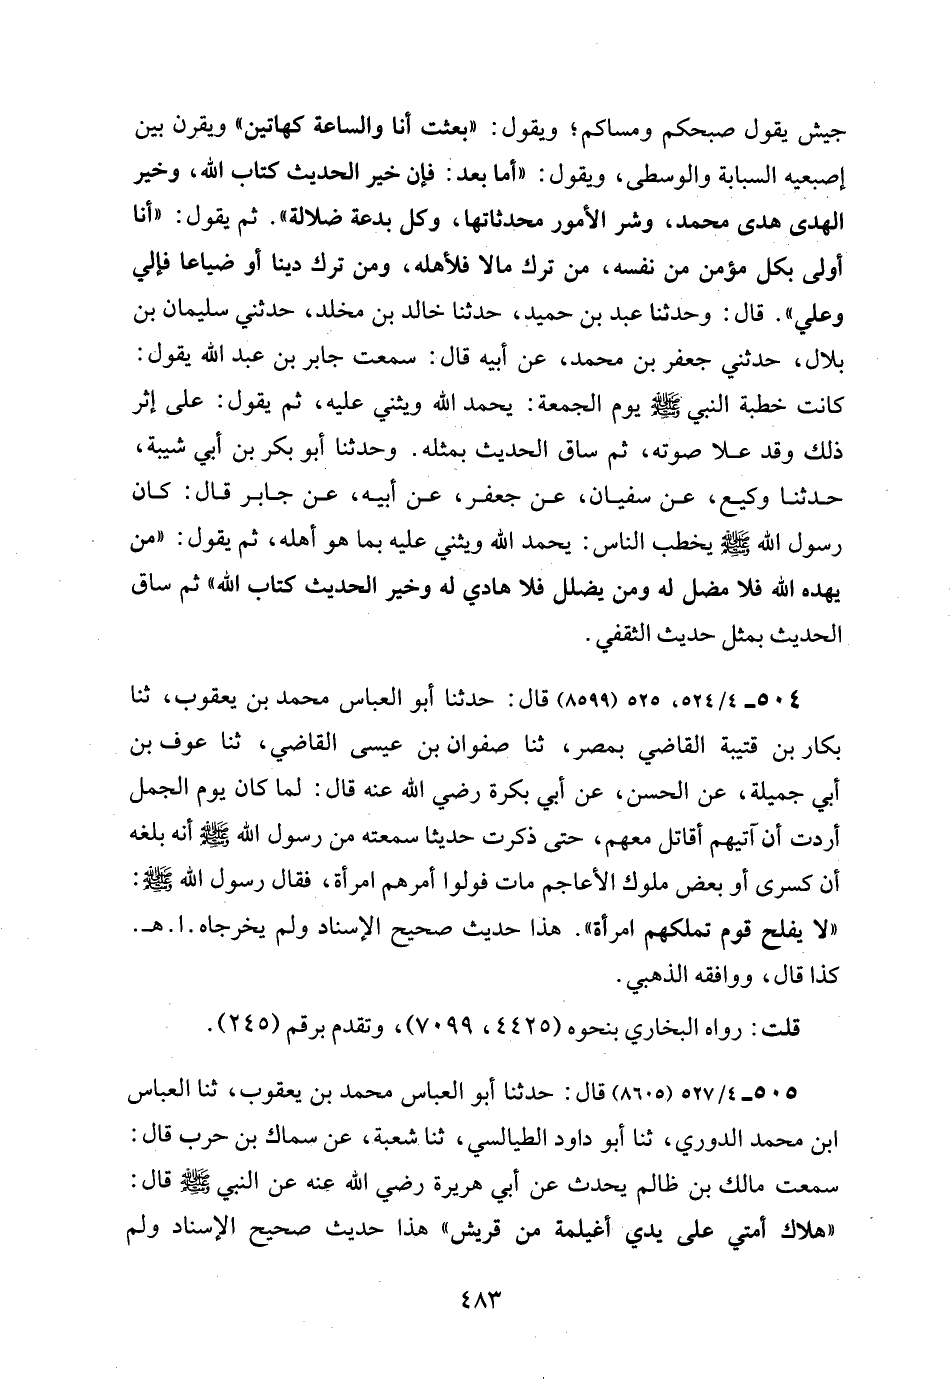 جيش يقول صبحكم ومساكم؛ ويقول: «بعثت أنا والساعة كهاتين» ويقرن بين
إصبعيه السبابة والوسطى، ويقول: «أما بعد: فإن خير الحديث كتاب الله، وخير
الهدى هدى محمد، وشر الأمور محدثاتها، وكل بدعة ضلالة». ثم يقول: «أنا
أولى بكل مؤمن من نفسه، من ترك مالا فلأهله، ومن ترك دينا أو ضياعا فإلي
وعلي». قال: وحدثنا عبد بن حميد، حدثنا خالد بن مخلد، حدثني سليمان بن
بلال، حدثني جعفر بن محمد، عن أبيه قال: سمعت جابر بن عبد الله يقول:
كانت خطبة النبي ﷺ يوم الجمعة: يحمد الله ويثني عليه، ثم يقول: على إثر
ذلك وقد علا صوته، ثم ساق الحديث بمثله. وحدثنا أبو بكر بن أبي شيبة،
حدثنا وكيع، عن سفيان، عن جعفر، عن أبيه، عن جابر قال: كان
رسول الله ﷺ يخطب الناس: يحمد الله ويثني عليه بما هو أهله، ثم يقول: «من
يهده الله فلا مضل له ومن يضلل فلا هادي له وخير الحديث كتاب الله» ثم ساق
الحديث بمثل حديث الثقفي.
٥٠٤ـ ٤/ ٥٢٤، ٥٢٥ (٨٥٩٩) قال: حدثنا أبو العباس محمد بن يعقوب، ثنا
بكار بن قتيبة القاضي بمصر، ثنا صفوان بن عيسى القاضي، ثنا عوف بن
أبي جميلة، عن الحسن، عن أبي بكرة رضي الله عنه قال: لما كان يوم الجمل
أردت أن آتيهم أقاتل معهم، حتى ذكرت حديثا سمعته من رسول الله ﷺ أنه بلغه
أن كسرى أو بعض ملوك الأعاجم مات فولوا أمرهم امرأة، فقال رسول الله ﷺ:
«لا يفلح قوم تملكهم امرأة». هذا حديث صحيح الإسناد ولم يخرجاه.ا.هـ.
كذا قال، ووافقه الذهبي.
قلت: رواه البخاري بنحوه (٤٤٢٥، ٧٠٩٩)، وتقدم برقم (٢٤٥).
٥٠٥ـ ٤/ ٥٢٧ (٨٦٠٥) قال: حدثنا أبو العباس محمد بن يعقوب، ثنا العباس
ابن محمد الدوري، ثنا أبو داود الطيالسي، ثنا شعبة، عن سماك بن حرب قال:
سمعت مالك بن ظالم يحدث عن أبي هريرة رضي الله عنه عن النبي ﷺ قال:
«هلاك أمتي على يدي أغيلمة من قريش» هذا حديث صحيح الإسناد ولم
٤٨٣